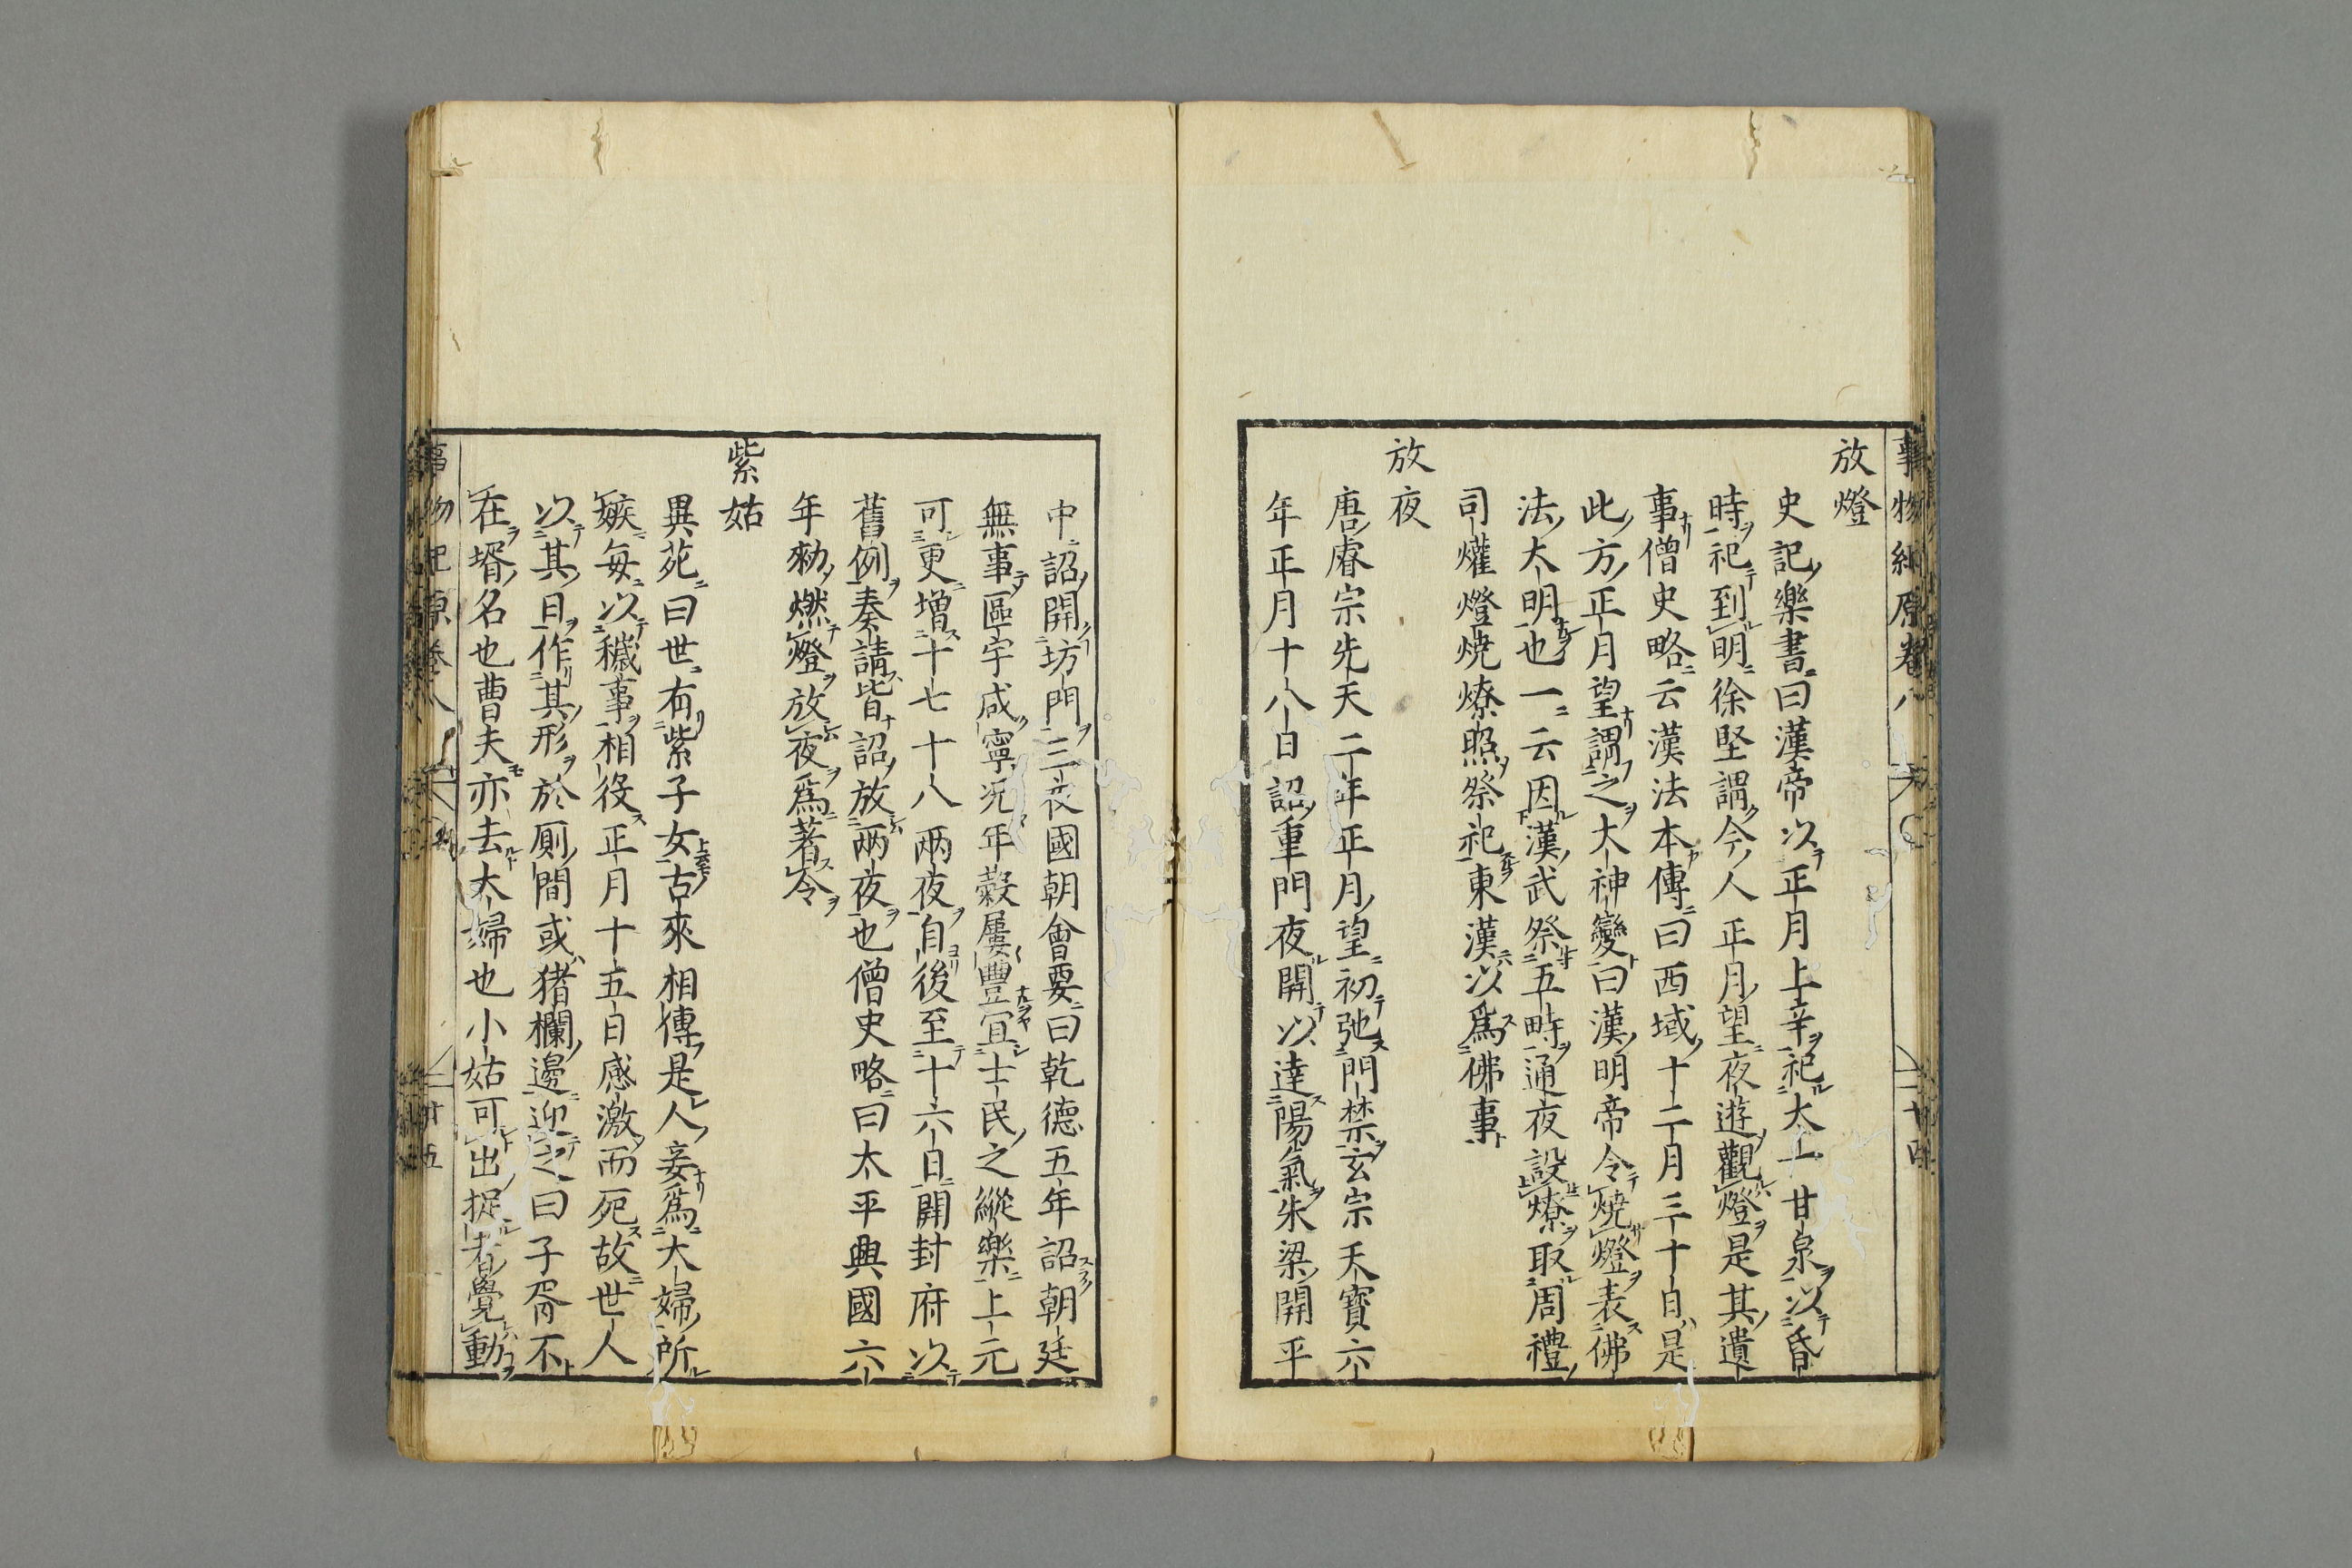 事物紀原卷八
放燈
史記樂書曰漢帝以正月上辛祀太一甘泉以昏
時祀到明徐堅謂今人正月望夜遊觀燈是其遺
事僧史略云漢法本傳曰西域十二月三十日是
此方正月望謂之大神變曰漢明帝令燒燈表佛
法太明也一云因漢武祭五時通夜設燎取周禮
司爟燈燒燎照祭祀東漢以為佛事
放夜
唐睿宗先天二年正月望初弛門禁玄宗天寶六
年正月十八日詔重門夜開以達陽氣朱梁開平
中詔開坊門三夜國朝會要曰乾德五年詔朝廷
無事區宇咸寧况年穀屢豐宜士民之縱樂上元
可更增十七十八兩夜自後至十六日開封府以
舊例奏請皆詔放兩夜也僧史略曰太平興國六
年勑燃燈放夜為著令
紫姑
異苑曰世有紫子女古來相傳是人妾為大婦所
嫉每以穢事相役正月十五日感激而死故世人
以其日作其形於廁間或猪欄邊迎之曰子胥不
在壻名也曹夫亦去大婦也小姑可出捉者覺動
事物紀原卷八 廿五